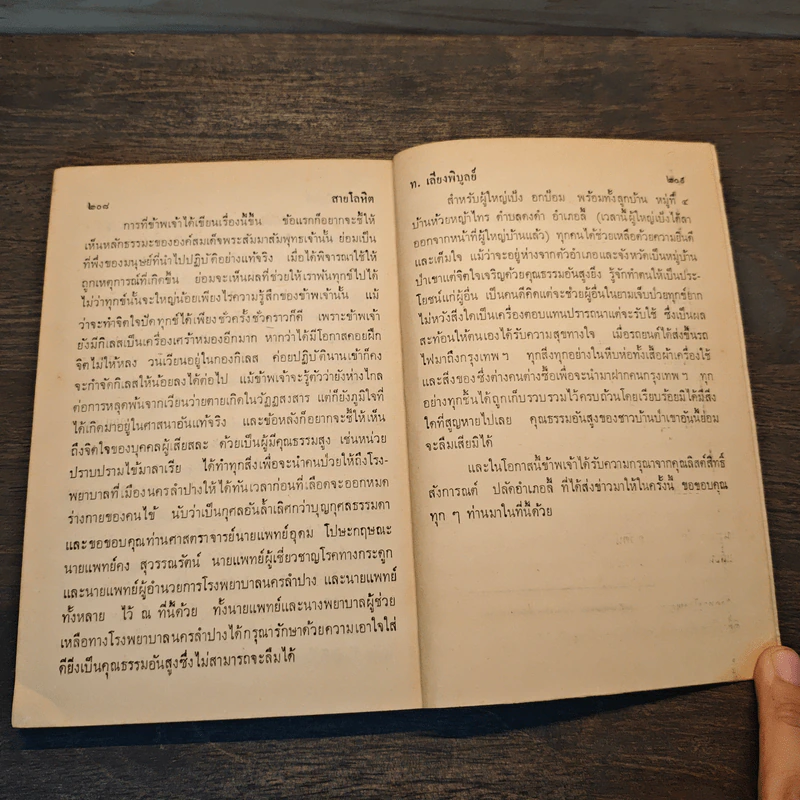 ๒๐๘ สายโลหิต
การที่ข้าพเจ้าได้เขียนเรื่องนี้ขึ้น ข้อแรกก็อยากจะชี้ให้
เห็นหลักธรรมะขององค์สมเด็จพระสัมมาสัมพุทธเจ้านั้น ย่อมเป็น
ที่พึ่งของมนุษย์ที่นำไปปฏิบัติอย่างแท้จริง เมื่อได้พิจารณาใช้ให้
ถูกเหตุการณ์ที่เกิดขึ้น ย่อมจะเห็นผลที่ช่วยให้เราพ้นทุกข์ไปได้
ไม่ว่าทุกข์นั้นจะใหญ่น้อยเพียงไรความรู้สึกของข้าพเจ้านั้น แม้
ว่าจะทำจิตใจปัดทุกข์ได้เพียงชั่วครั้งชั่วคราวก็ดี เพราะข้าพเจ้า
ยังมีกิเลสเป็นเครื่องเศร้าหมองอีกมาก หากว่าได้มีโอกาสคอยฝึก
จิตไม่ให้หลง วนเวียนอยู่ในกองกิเลส ค่อยปฏิบัตินานเข้าก็คง
จะกำจัดกิเลสให้น้อยลงได้ต่อไป แม้ข้าพเจ้าจะรู้ตัวว่ายังห่างไกล
ต่อการหลุดพ้นจากเวียนว่ายตายเกิดในวัฏฏสงสาร แต่ก็ยังภูมิใจที่
ได้เกิดมาอยู่ในศาสนาอันแท้จริง และข้อหลังก็อยากจะชี้ให้เห็น
ถึงจิตใจของบุคคลผู้เสียสละ ด้วยเป็นผู้มีคุณธรรมสูง เช่นหน่วย
ปราบปรามไข้มาลาเรีย ได้ทำทุกสิ่งเพื่อจะนำคนป่วยให้ถึงโรง-
พยาบาลที่เมืองนครลำปางให้ได้ทันเวลาก่อนที่เลือดจะออกหมด
ร่างกายของคนไข้ นับว่าเป็นกุศลอันล้ำเลิศกว่าบุญกุศลธรรมดา
และขอขอบคุณท่านศาสตราจารย์นายแพทย์อุดม โปษะกฤษณะ
นายแพทย์คง สุวรรณรัตน์ นายแพทย์ผู้เชี่ยวชาญโรคทางกระดูก
และนายแพทย์ผู้อำนวยการโรงพยาบาลนครลำปาง และนายแพทย์
ทั้งหลาย ไว้ ณ ที่นี้ด้วย ทั้งนายแพทย์และนางพยาบาลผู้ช่วย
เหลือทางโรงพยาบาลนครลำปางได้กรุณารักษาด้วยความเอาใจใส่
ดียิ่งเป็นคุณธรรมอันสูงซึ่งไม่สามารถจะลืมได้
ท. เลียงพิบูลย์ ๒๐๙
สำหรับผู้ใหญ่เบ็ง อกบ็อม พร้อมทั้งลูกบ้าน หมู่ที่ ๔
บ้านห้วยหญ้าไทร ตำบลดงดำ อำเภอลี้ (เวลานี้ผู้ใหญ่เบ็งได้ลา
ออกจากหน้าที่ผู้ใหญ่บ้านแล้ว) ทุกคนได้ช่วยเหลือด้วยความยินดี
และเต็มใจ แม้ว่าจะอยู่ห่างจากตัวอำเภอและจังหวัดเป็นหมู่บ้าน
ป่าเขาแต่จิตใจเจริญด้วยคุณธรรมอันสูงยิ่ง รู้จักทำตนให้เป็นประ-
โยชน์แก่ผู้อื่น เป็นคนที่คิดแต่จะช่วยผู้อื่นในยามเจ็บป่วยทุกข์ยาก
ไม่หวังสิ่งใดเป็นเครื่องตอบแทนปรารถนาแต่จะรับใช้ ซึ่งเป็นผล
สะท้อนให้ตนเองได้รับความสุขทางใจ เมื่อรถยนต์ได้ส่งขึ้นรถ
ไฟมาถึงกรุงเทพฯ ทุกสิ่งทุกอย่างในหีบห่อทั้งเสื้อผ้าเครื่องใช้
และสิ่งของซึ่งต่างคนต่างซื้อเพื่อจะนำมาฝากคนกรุงเทพฯ ทุก
อย่างทุกชิ้นได้ถูกเก็บรวบรวมไว้ครบถ้วนโดยเรียบร้อยมิได้มีสิ่ง
ใดที่สูญหายไปเลย คุณธรรมอันสูงของชาวบ้านป่าเขาอันนี้ย่อม
จะลืมเสียมิได้
และในโอกาสนี้ข้าพเจ้าได้รับความกรุณาจากคุณลิสต์สิทธิ์
สังการณต์ ปลัดอำเภอลี้ ที่ได้ส่งข่าวมาให้ในครั้งนี้ ขอขอบคุณ
ทุก ๆ ท่านมาในที่นี้ด้วย